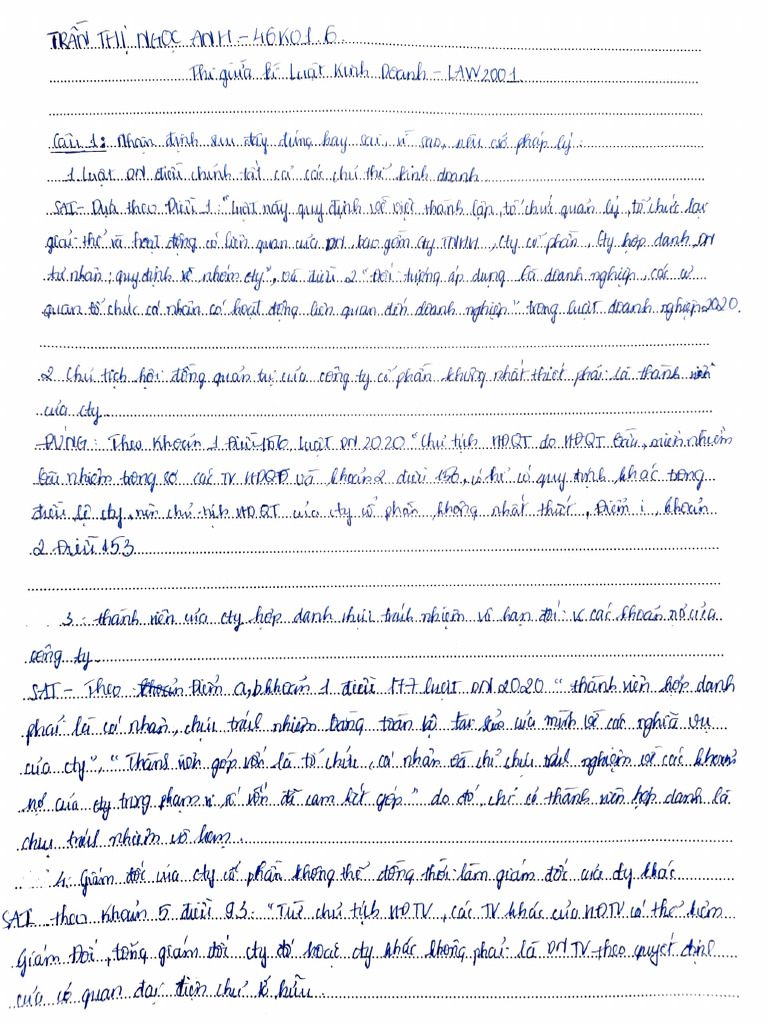 TRẦN THỊ NGỌC ANH - 46K01.6.
Thi giữa kì Luật Kinh Doanh - LAW2001.
Câu 1: Nhận định sau đây đúng hay sai, vì sao, nêu cơ sở pháp lý:
1. Luật DN điều chỉnh tất cả các chủ thể kinh doanh
SAI - Dựa theo Điều 1: "Luật này quy định về việc thành lập, tổ chức quản lý, tổ chức lại
giải thể và hoạt động có liên quan của DN, bao gồm cty TNHH, cty cổ phần, cty hợp danh, DN
tư nhân; quy định về nhóm cty", và điều 2 "Đối tượng áp dụng là doanh nghiệp, các cơ
quan tổ chức cá nhân có hoạt động liên quan đến doanh nghiệp" trong luật doanh nghiệp 2020.
2. Chủ tịch hội đồng quản trị của công ty cổ phần không nhất thiết phải là thành viên
của cty
ĐÚNG: Theo Khoản 1 Điều 156 Luật DN 2020 "Chủ tịch HĐQT do HĐQT bầu, miễn nhiệm
bãi nhiệm trong số các TV HĐQT và khoản 2 điều 156, có thể có quy định khác trong
điều lệ cty, nên chủ tịch HĐQT của cty cổ phần không nhất thiết, Điểm i, khoản
2 Điều 153
3. thành viên của cty hợp danh chịu trách nhiệm vô hạn đối v các khoản nợ của
công ty
SAI - Theo Điểm a, b khoản 1 điều 177 luật DN 2020 "thành viên hợp danh
phải là cá nhân, chịu trách nhiệm bằng toàn bộ tài sản của mình về các nghĩa vụ
của cty", "Thành viên góp vốn là tổ chức, cá nhân và chỉ chịu trách nghiệm về các khoản
nợ của cty trong phạm vi số vốn đã cam kết góp" do đó, chỉ có thành viên hợp danh là
chịu trách nhiệm vô hạn.
4. Giám đốc của cty cổ phần không thể đồng thời làm giám đốc của cty khác
SAI theo khoản 5 điều 93: "Trừ chủ tịch HĐTV, các TV khác của HĐTV có thể kiêm
Giám Đốc, tổng giám đốc cty đó hoặc cty khác không phải là DN TV theo quyết định
của cơ quan đại diện chủ sở hữu.